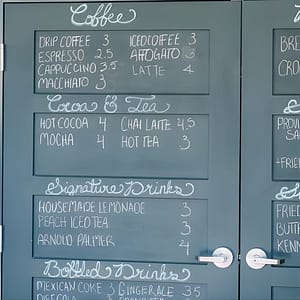 Coffee
DRIP COFFEE 3 ICED COFFEE 3
ESPRESSO 2.5 AFFOGATO 3
CAPPUCCINO 3.5 LATTE 4
MACCHIATO 3
Cocoa & Tea
HOT COCOA 4 CHAI LATTE 4.5
MOCHA 4 HOT TEA 3
Signature Drinks
HOUSEMADE LEMONADE 3
PEACH ICED TEA 3
ARNOLD PALMER 4
Bottled Drinks
MEXICAN COKE 3 GINGERALE 3.5
BRE
CRO
PROV
SA
+FRIE
FRIE
BUTT
KENN